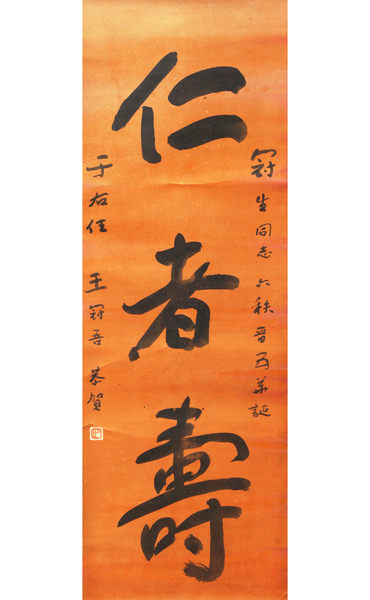 冠生同志 六秩晉五華誕
仁者壽
于右任 王冠吾 恭賀